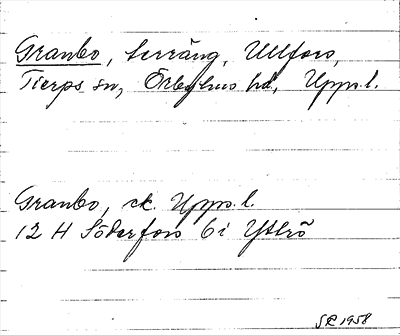 Granbo, terräng, Ullfors,
Tierps sn, Örbyhus hd, Upps.l.
Granbo, ek. Upps.l.
12 H Söderfors 6i Ytlrö
SR 1958